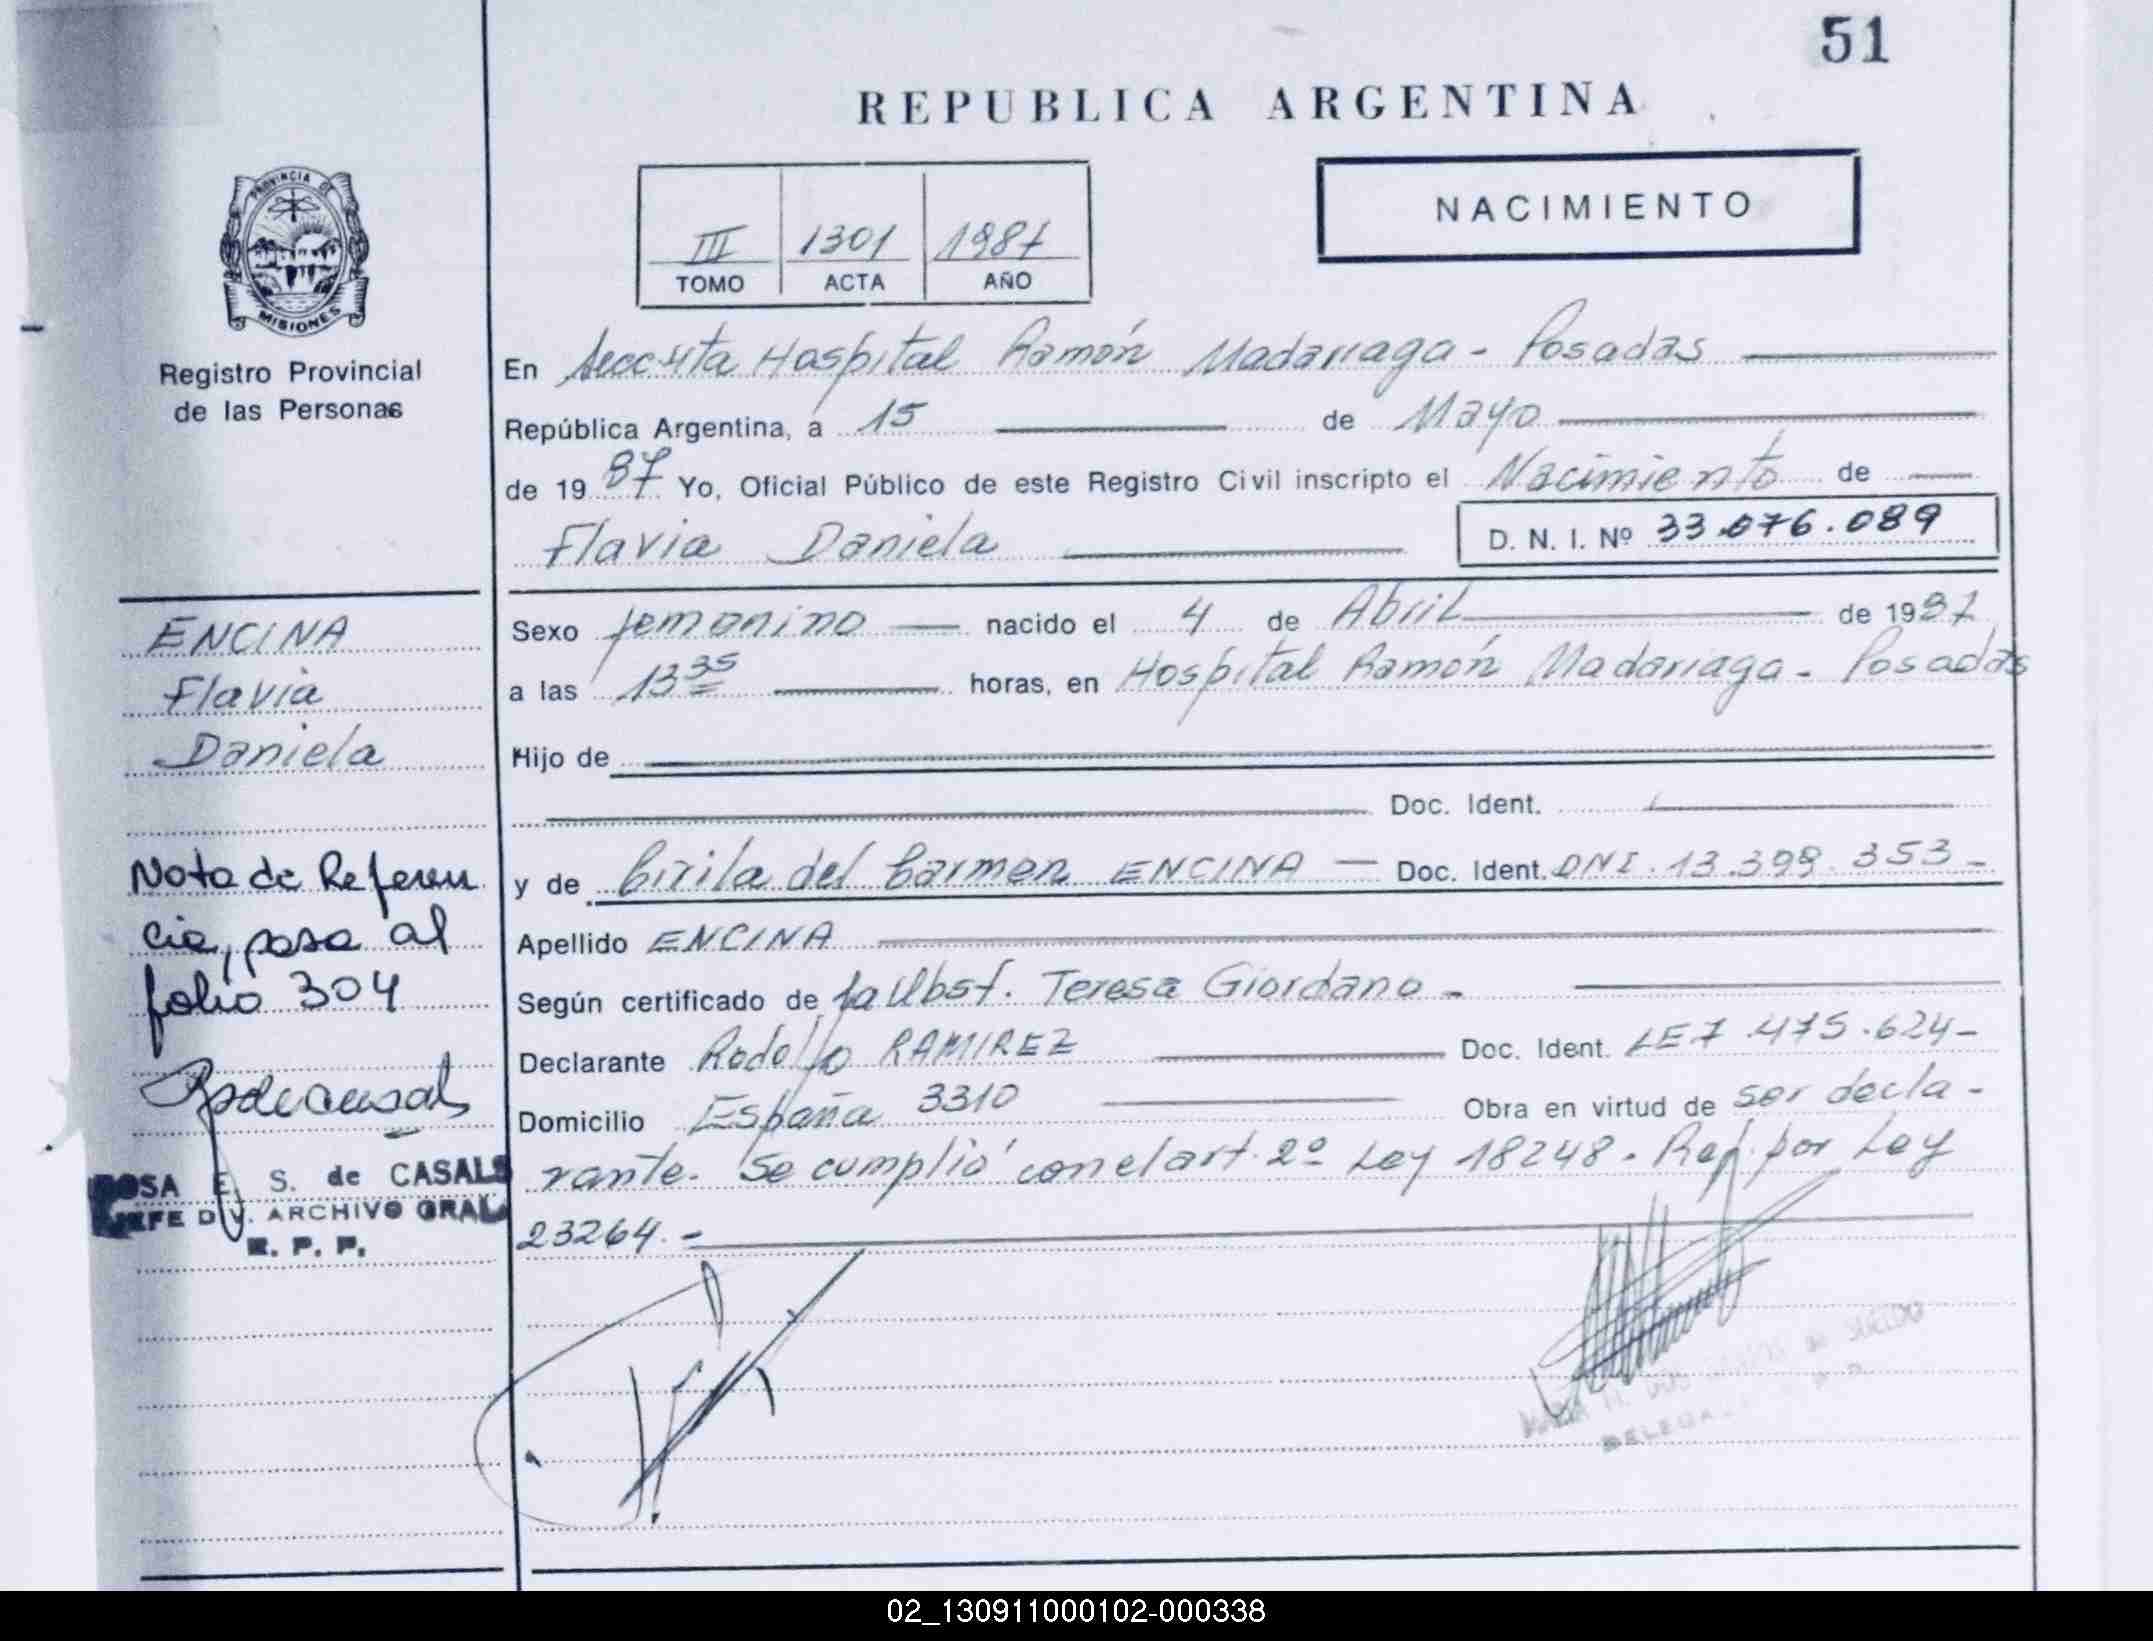 51
REPUBLICA ARGENTINA
NACIMIENTO
III 1301 1987
TOMO ACTA AÑO
PROVINCIA DE
MISIONES
Registro Provincial
de las Personas
En Hospital Ramón Madariaga - Posadas
República Argentina, a 15 de Mayo
de 1987 Yo, Oficial Público de este Registro Civil inscripto el Nacimiento de
Flavia Daniela
D. N. I. Nº 33.076.089
ENCINA
Flavia
Daniela
Sexo femenino nacido el 4 de Abril de 1987
a las 13 35 horas, en Hospital Ramón Madariaga - Posadas
Hijo de
Doc. Ident.
y de Cirila del Carmen ENCINA Doc. Ident. DNI. 13.399.353-
Apellido ENCINA
Según certificado de la Obst. Teresa Giordano -
Declarante Rodolfo RAMIREZ Doc. Ident. LE 7.475.624-
Domicilio España 3310 Obra en virtud de ser decla-
rante. Se cumplió con el art. 2º Ley 18248. Ref. por Ley
23264.-
Nota de Referen
cia, pasa al
folio 304
ROSA E. S. de CASALS
JEFE DIV. ARCHIVO GRAL
R. P. P.
02_130911000102-000338